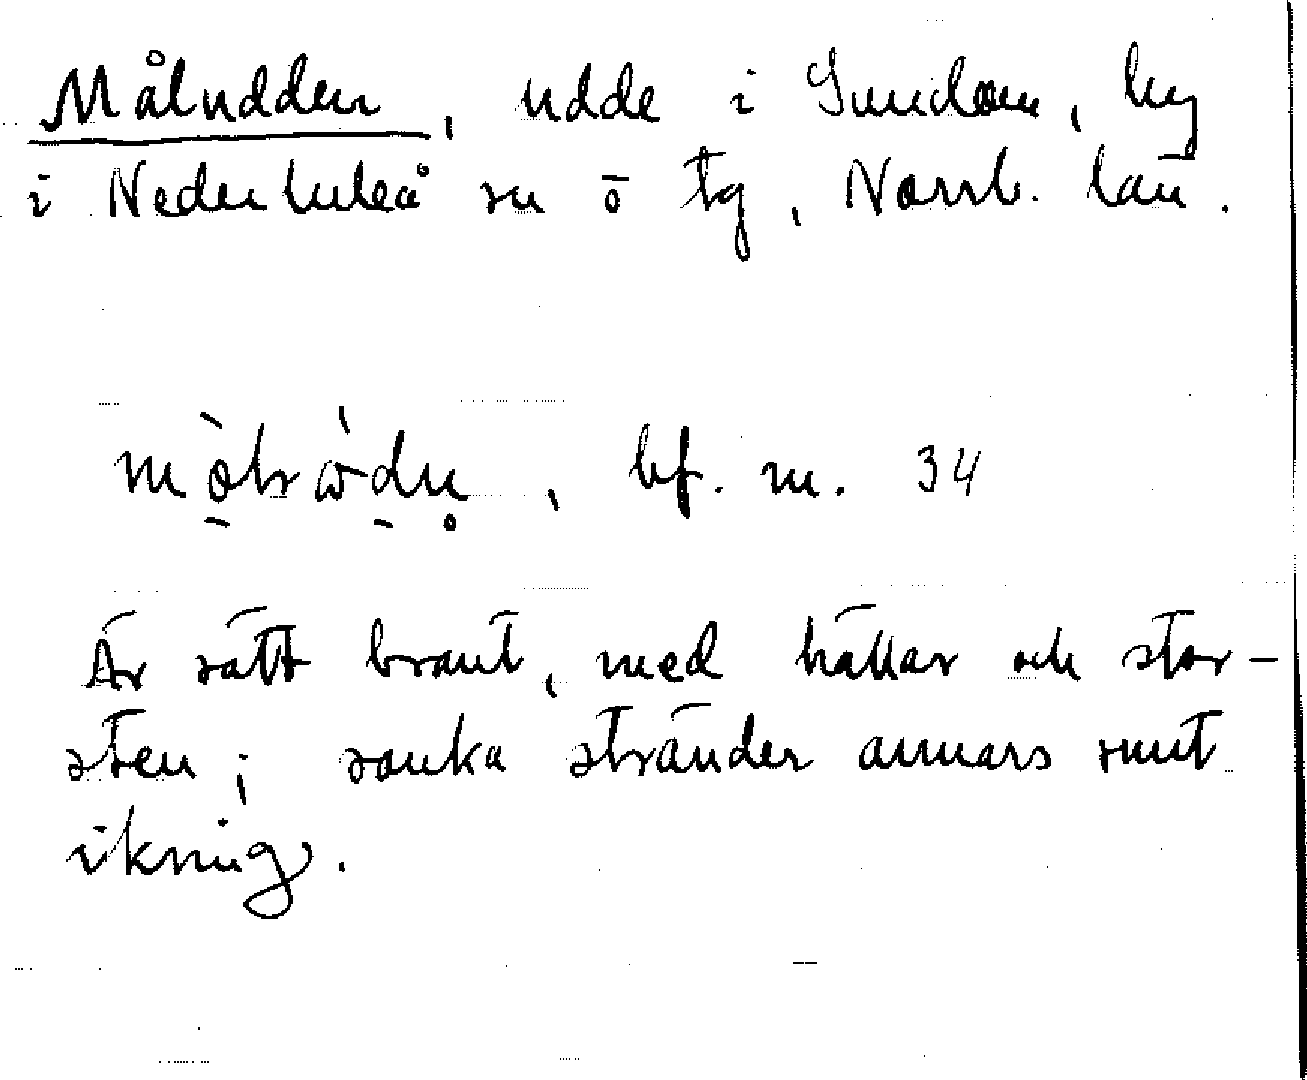 Måludden, udde i Sundom, by
i Nederluleå sn o tg, Norrb. län.
bf. m. 34
Är rätt brant, med hällar och stor-
sten; sanka stränder annars runt
ikring.